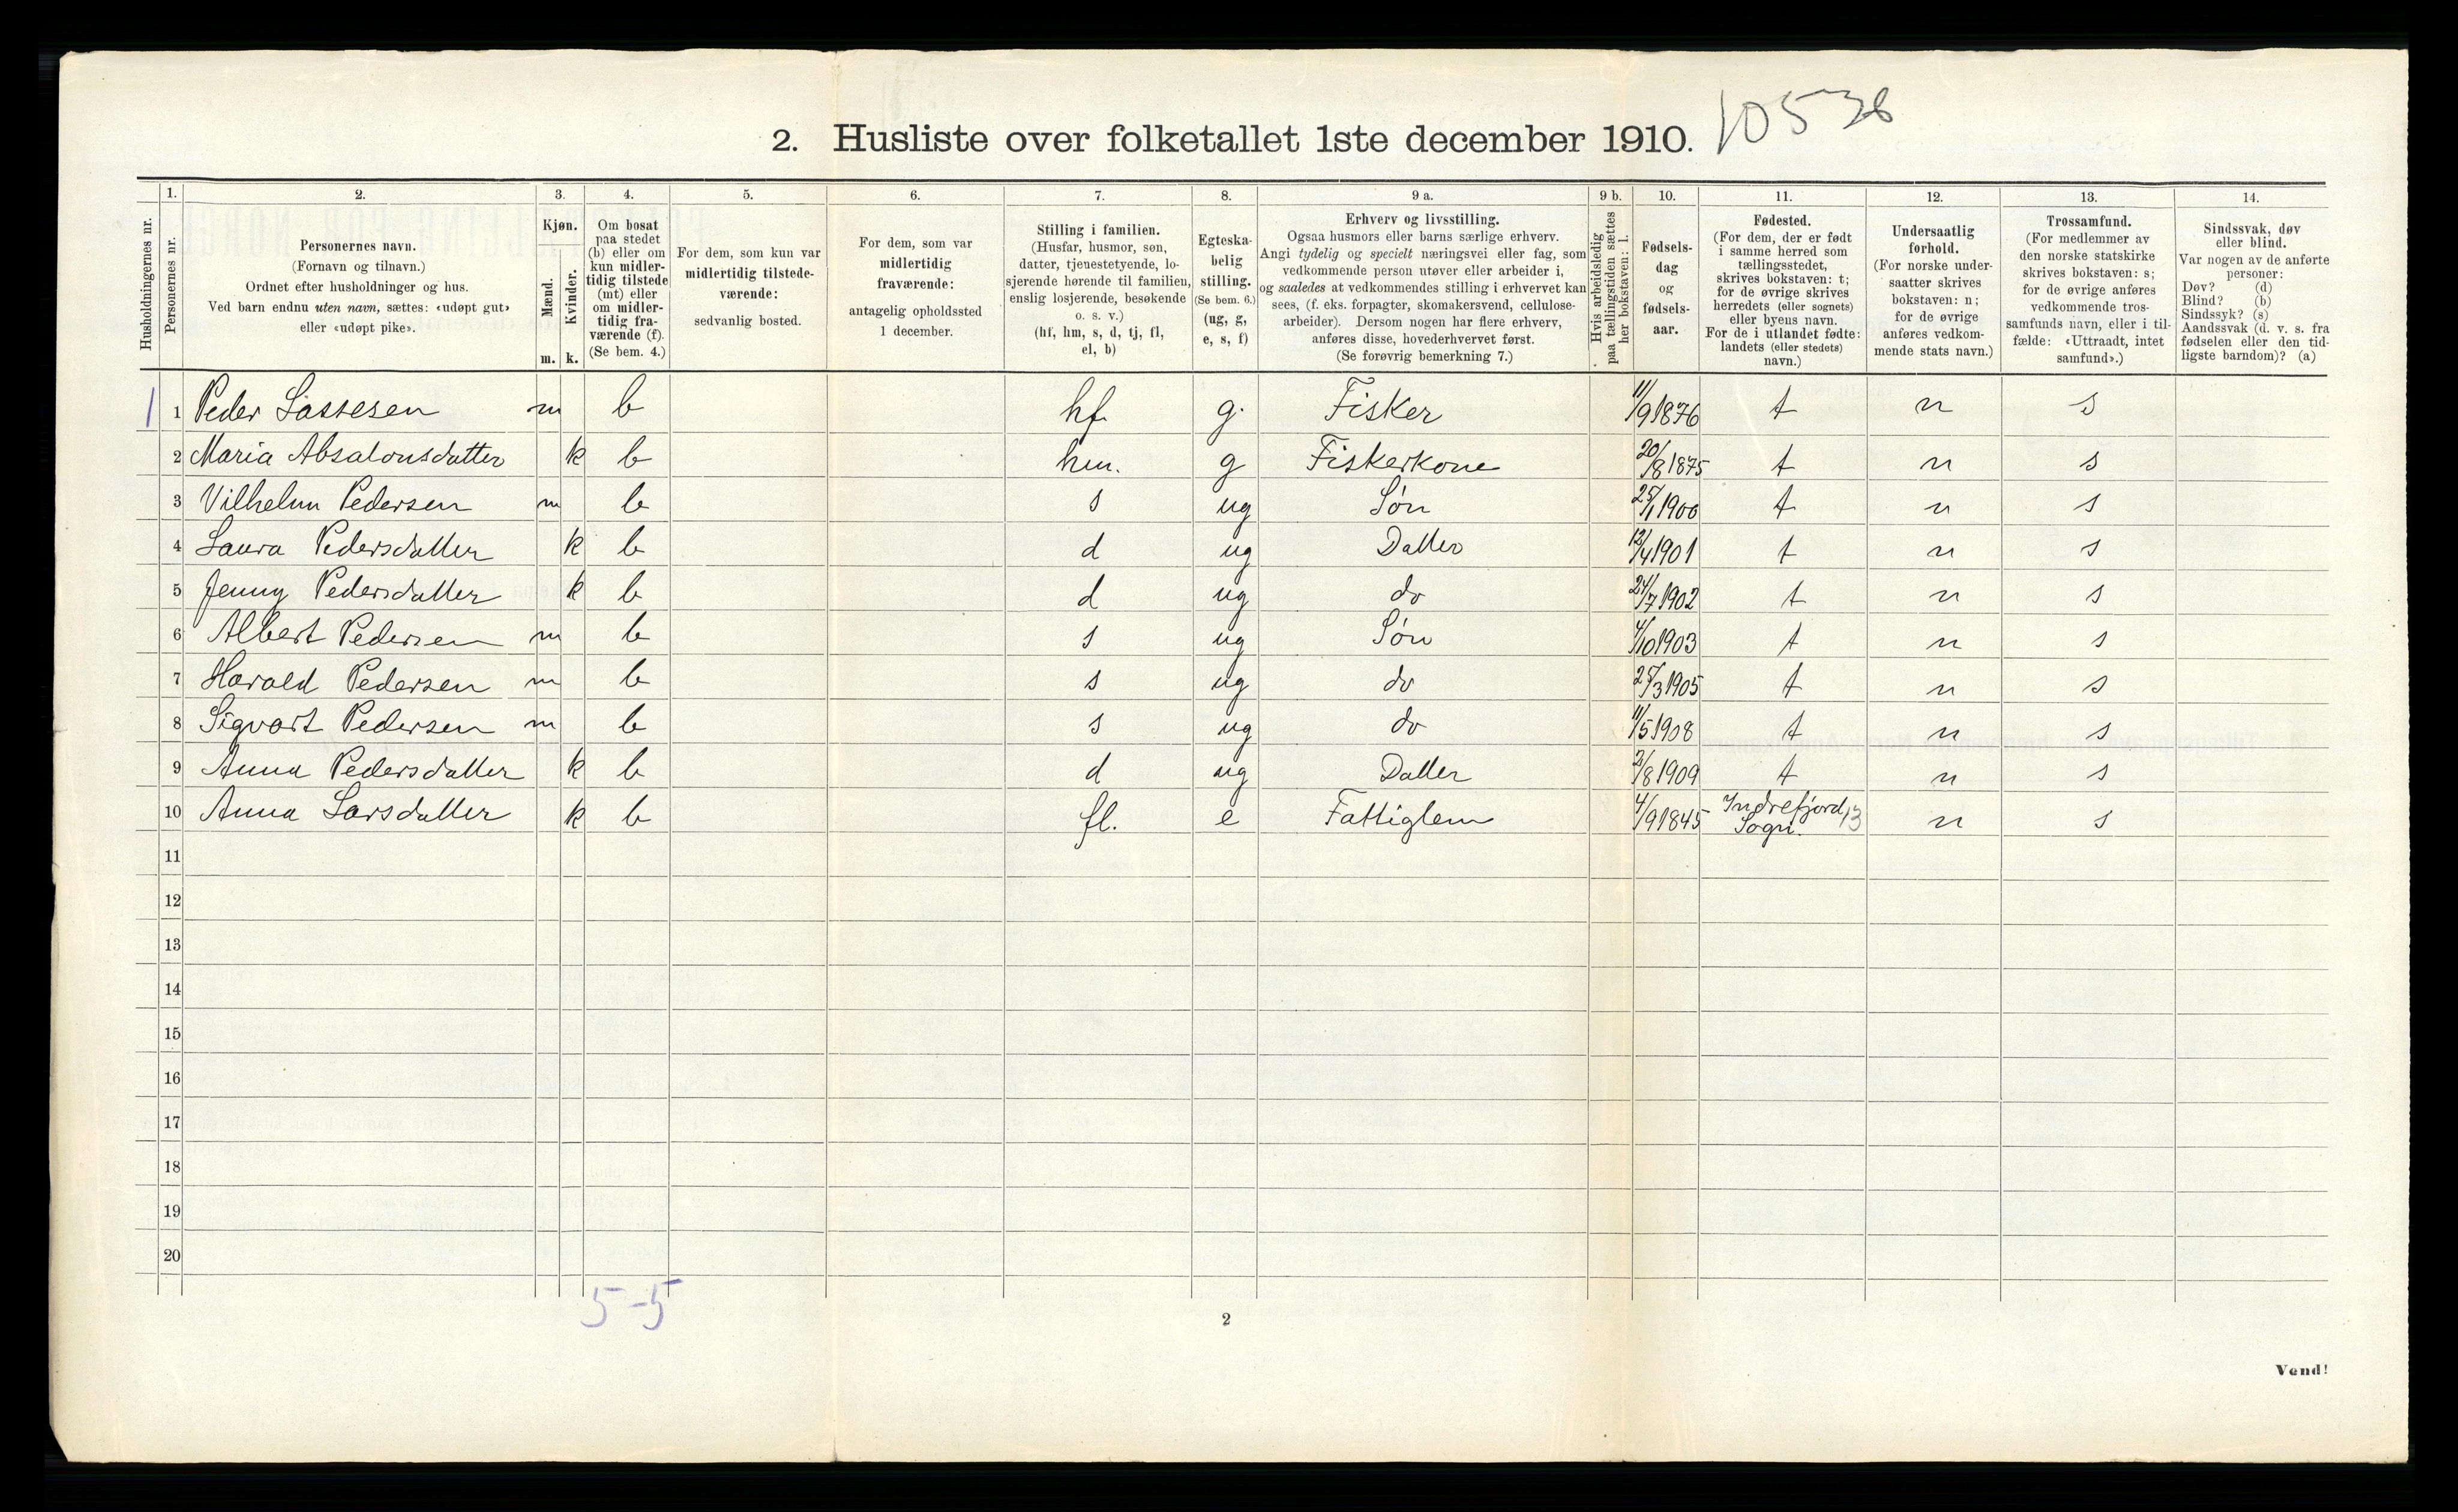 2. Husliste over folketallet 1ste december 1910. 10536
Husholdningernes nr.
1.
Personernes nr.
2.
Personernes navn.
(Fornavn og tilnavn.)
Ordnet efter husholdninger og hus.
Ved barn endnu uten navn, sættes: «udøpt gut»
eller «udøpt pike».
3.
Kjøn.
Mænd.
Kvinder.
m. k.
4.
Om bosat
paa stedet
(b) eller om
kun midler-
tidig tilstede
(mt) eller
om midler-
tidig fra-
værende (f).
(Se bem. 4.)
5.
For dem, som kun var
midlertidig tilstede-
værende:
sedvanlig bosted.
6.
For dem, som var
midlertidig
fraværende:
antagelig opholdssted
1 december.
7.
Stilling i familien.
(Husfar, husmor, søn,
datter, tjenestetyende, lo-
sjerende hørende til familien,
enslig losjerende, besøkende
o. s. v.)
(hf, hm, s, d, tj, fl,
el, b)
8.
Egteska-
belig
stilling.
(Se bem. 6.)
(ug, g,
e, s, f)
9 a.
Erhverv og livsstilling.
Ogsaa husmors eller barns særlige erhverv.
Angi tydelig og specielt næringsvei eller fag, som
vedkommende person utøver eller arbeider i,
og saaledes at vedkommendes stilling i erhvervet kan
sees, (f. eks. forpagter, skomakersvend, cellulose-
arbeider). Dersom nogen har flere erhverv,
anføres disse, hovederhvervet først.
(Se forøvrig bemerkning 7.)
9 b.
Hvis arbeidsledig
paa tællingstiden sættes
her bokstaven: l.
10.
Fødsels-
dag
og
fødsels-
aar.
11.
Fødested.
(For dem, der er født
i samme herred som
tællingsstedet,
skrives bokstaven: t;
for de øvrige skrives
herredets (eller sognets)
eller byens navn.
For de i utlandet fødte:
landets (eller stedets)
navn.)
12.
Undersaatlig
forhold.
(For norske under-
saatter skrives
bokstaven: n;
for de øvrige
anføres vedkom-
mende stats navn.)
13.
Trossamfund.
(For medlemmer av
den norske statskirke
skrives bokstaven: s;
for de øvrige anføres
vedkommende tros-
samfunds navn, eller i til-
fælde: «Uttraadt, intet
samfund».)
14.
Sindssvak, døv
eller blind.
Var nogen av de anførte
personer:
Døv? (d)
Blind? (b)
Sindssyk? (s)
Aandssvak (d. v. s. fra
fødselen eller den tid-
ligste barndom)? (a)
1 1 Peder Lassesen m b hf g. Fisker 11/9 1876 t n s
2 Maria Absalonsdatter k b hm. g Fiskerkone 20/8 1875 t n s
3 Vilhelm Pedersen m b s ug Søn 25/1 1900 t n s
4 Laura Pedersdatter k b d ug Datter 12/4 1901 t n s
5 Jenny Pedersdatter k b d ug do 24/7 1902 t n s
6 Albert Pedersen m b s ug Søn 4/10 1903 t n s
7 Harald Pedersen m b s ug do 25/3 1905 t n s
8 Sigvart Pedersen m b s ug do 11/5 1908 t n s
9 Anna Pedersdatter k b d ug Datter 2/8 1909 t n s
10 Anna Larsdatter k b fl. e Fattiglem 4/9 1845 Indrefjord, 13 n s
Sogn.
11
12
13
14
15
16
17
18
19
20
5-5
2
Vend!